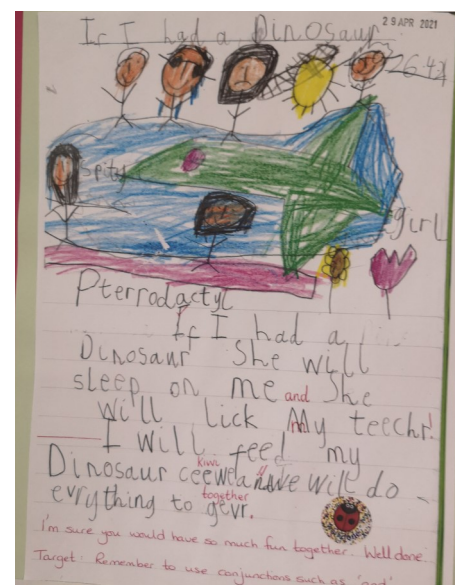 If I had a Dinosaur
29 APR 2021
Spity
girl
Pterrodactyl
If I had a
Dinosaur She will
sleep on me and She
will lick My teechr.
I will feed my
kiwi
Dinosaur ceewe and we will do
together
evrything to gevr.
I'm sure you would have so much fun together. Well done.
Target: Remember to use conjunctions such as 'and'